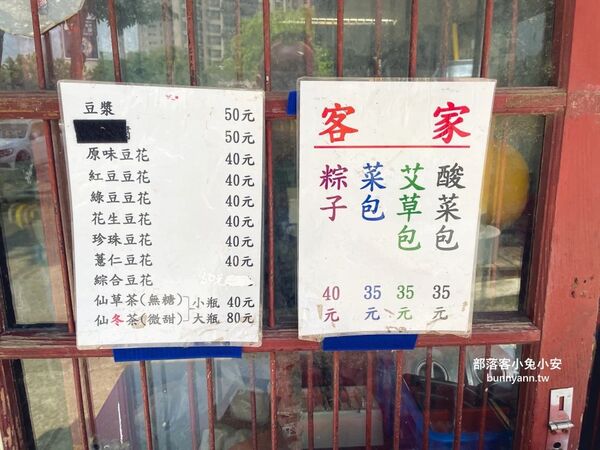 豆漿 50元
腐 50元
原味豆花 40元
紅豆豆花 40元
綠豆豆花 40元
花生豆花 40元
珍珠豆花 40元
薏仁豆花 40元
綜合豆花
仙草茶(無糖) 小瓶 40元
仙冬茶(微甜) 大瓶 80元
客家
粽子 40元
菜包 35元
艾草包 35元
酸菜包 35元
部落客小兔小安
bunnyann.tw